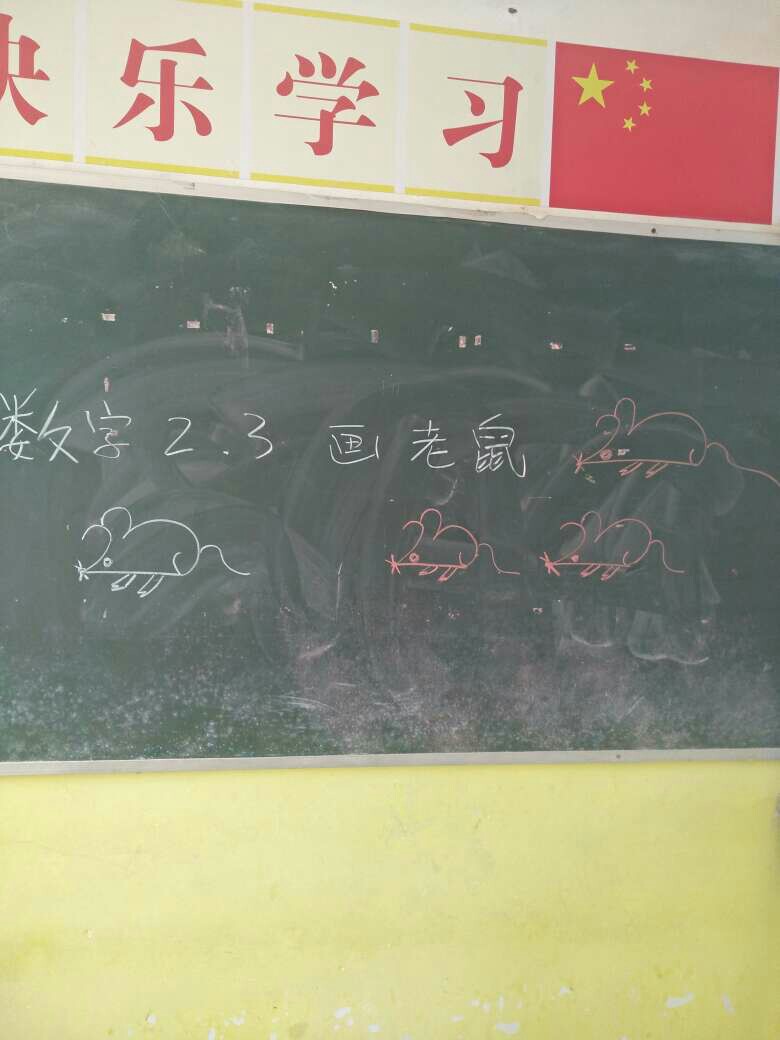 快乐学习
数字2.3 画老鼠